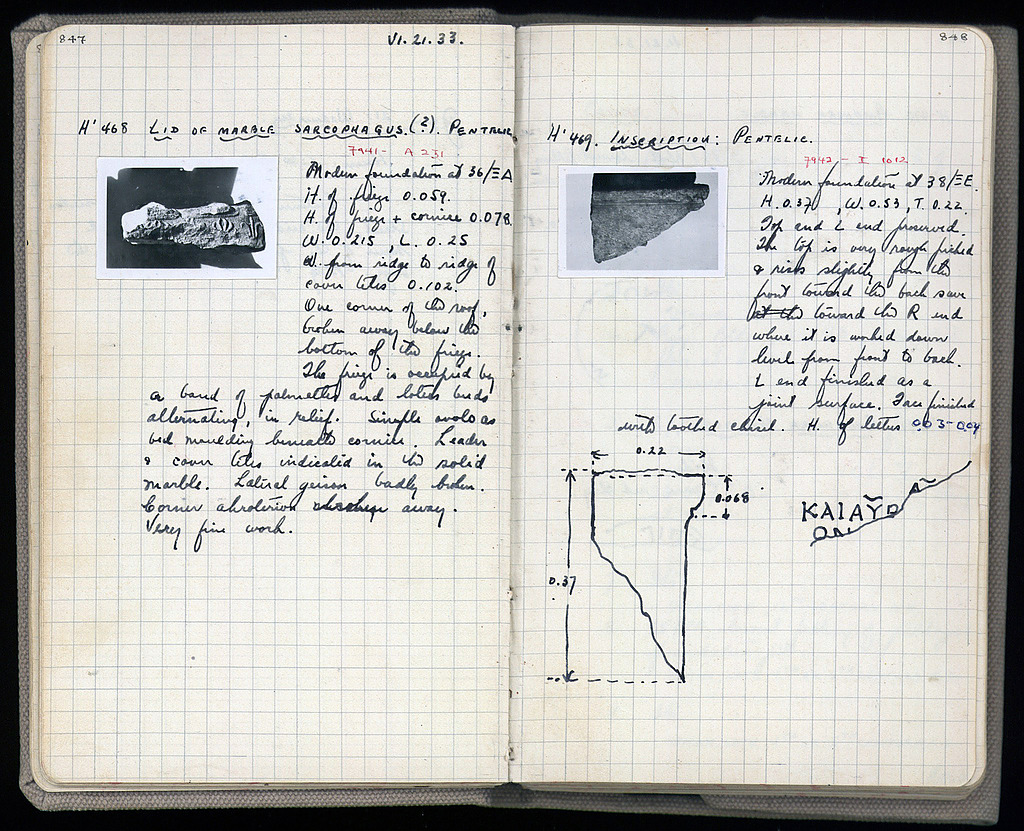 847
VI. 21. 33.
H' 468 LID OF MARBLE SARCOPHAGUS. (?). PENTELIC
7941 - A 231
Modern foundation at 36/ΞΔ
H. of frieze 0.059.
H. of frieze + cornice 0.078
W. 0.215, L. 0.25
W. from ridge to ridge of
cover tiles 0.102.
One corner of the roof,
broken away below the
bottom of the frieze.
The frieze is occupied by
a band of palmettes and lotus buds
alternating, in relief. Simple ovolo as
bed moulding beneath cornice. Leader
& cover tiles indicated in the solid
marble. Lateral geison badly broken.
Corner akroterion away.
Very fine work.
848
H' 469. INSCRIPTION: PENTELIC.
7942 - I 1012
Modern foundation at 38/ΞE.
H. 0.37, W. 0.53, T. 0.22.
Top and L end preserved.
The top is very rough picked
& rises slightly from the
front toward the back save
toward the R end
where it is worked down
level from front to back.
L end finished as a
joint surface. Face finished
with toothed chisel. H. of letters 0.03-0.04
0.22
0.068
0.37
ΚΑΙΑΥ